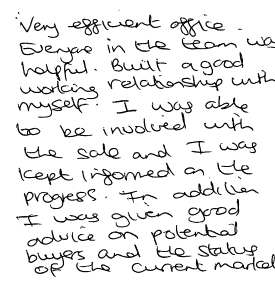 Very efficient office.
Everyone in the team was
helpful. Built a good
working relationship with
myself. I was able
to be involved with
the sale and I was
kept informed on the
progress. In addition
I was given good
advice on potential
buyers and the status
of the current market